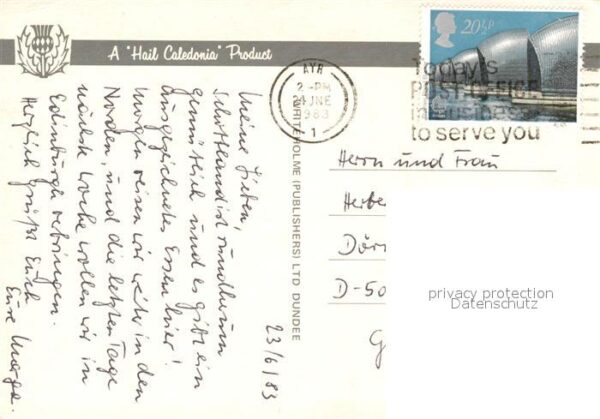 A "Hail Caledonia" Product
23/6/83
Meine Lieben,
Schottland ist rundherum
gemütlich und es gibt ein
ausgezeichnetes Essen hier!
Morgen reisen wir weiter in den
Norden, und die letzten Tage
nächste Woche wollen wir in
Edinburgh verbringen.
Herzlich grüßt Euch
Eure Marga.
WHITEHOLME (PUBLISHERS) LTD DUNDEE
AYR
2 - PM
24 JNE
1983
1
20½P
Today's
POST OFFICE
in business
to serve you
Herrn und Frau
Herbe
Dör
D-50
G
privacy protection
Datenschutz